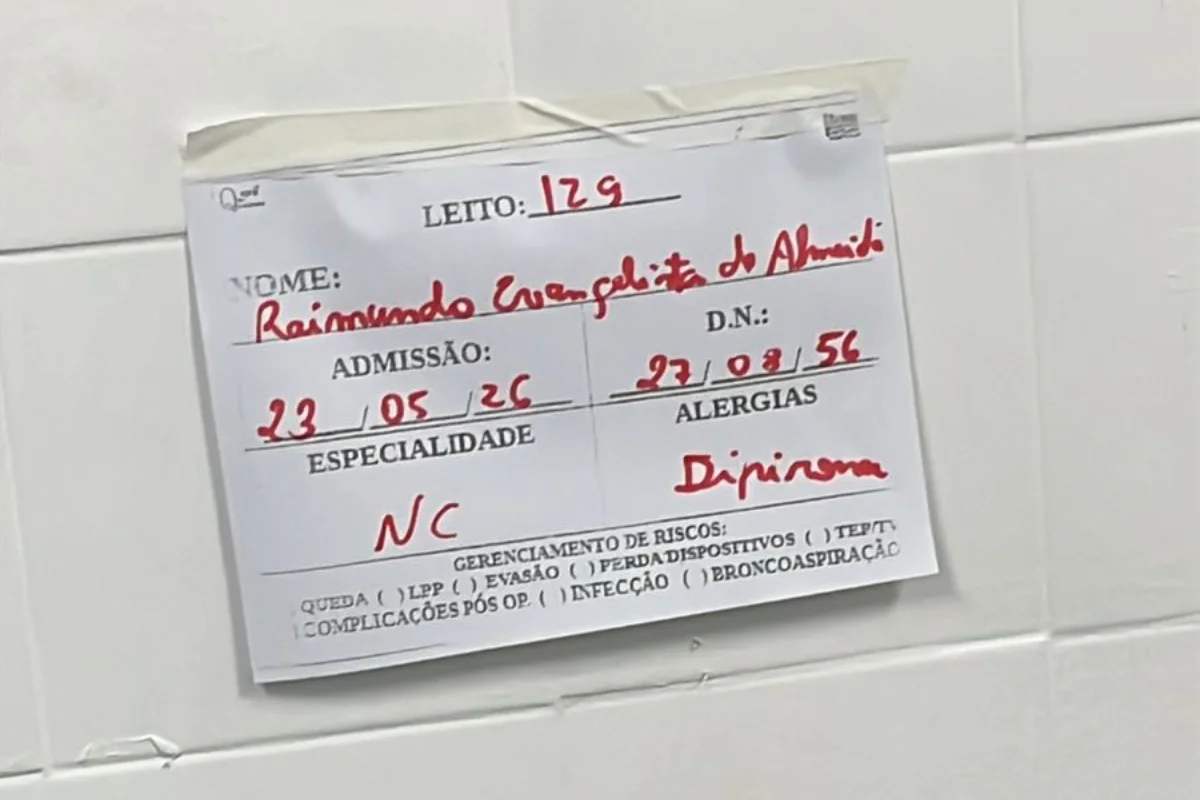 LEITO: 129
NOME:
Raimundo Evangelista de Almeida
ADMISSÃO: D.N.:
23/05/26 27/08/56
ESPECIALIDADE ALERGIAS
NC Dipirona
GERENCIAMENTO DE RISCOS:
QUEDA ( ) LPP ( ) EVASÃO ( ) PERDA DISPOSITIVOS ( ) TEP/TV
COMPLICAÇÕES PÓS OP. ( ) INFECÇÃO ( ) BRONCOASPIRAÇÃO